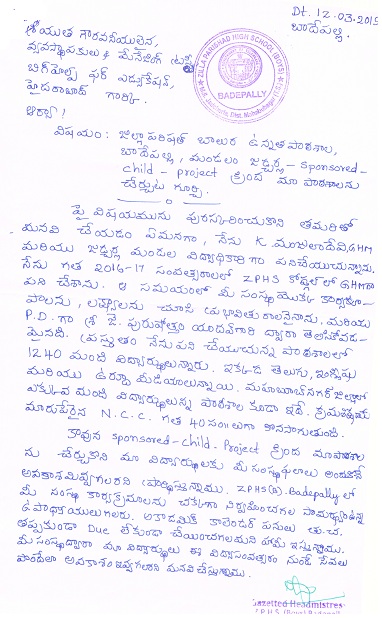 Dt. 12.03.201
బాదేపల్లి.
శ్రీయుత గౌరవనీయులైన,
వ్యవస్థాపకులు & మేనేజింగ్ ట్రస్టీ
బిగ్ హెల్ప్ ఫర్ ఎడ్యుకేషన్,
హైదరాబాద్ గార్కి.
ZILLA PARISHAD HIGH SCHOOL (BOYS)
BADEPALLY
ఆర్యా!
విషయం: జిల్లా పరిషత్ బాలుర ఉన్నత పాఠశాల,
బాదేపల్లి, మండలం జడ్చర్ల - Sponsored-
child - project క్రింద మా పాఠశాలను
చేర్చుట గూర్చి.
పై విషయమును పురస్కరించుకొని తమరితో
మనవి చేయడం ఏమనగా, నేను K.మంజులాదేవి,GHM
మరియు జడ్చర్ల మండల విద్యాధికారిగా పనిచేయుచున్నాను.
నేను గత 2016-17 సంవత్సరాలలో ZPHS కోస్గిలో GHMగా
పని చేశాను. ఆ సమయంలో మీ సంస్థయొక్క కార్యక్రమా-
లను, లక్ష్యాలను చూసి ప్రభావితురాలనైనాను, మరియు
P.D. గా శ్రీ జె. పురుషోత్తం యాదవ్‌గారి ద్వారా తెలుసుకోవడ-
మైనది. ప్రస్తుతం నేను పని చేయుచున్న పాఠశాలలో
1240 మంది విద్యార్థులున్నారు. ఇక్కడ తెలుగు, ఇంగ్లీషు
మరియు ఉర్దూ మీడియాలున్నాయి. మహబూబ్‌నగర్ జిల్లాలో
ఎక్కువ మంది విద్యార్థులున్న పాఠశాల కూడా ఇదే. క్రమశిక్షణకు
మారుపేరైన N.C.C. గత 40 సం॥లుగా కొనసాగుతుంది.
కావున Sponsored-child-Project క్రింద మాపాఠశాల
ను చేర్చుకొని మా విద్యార్థులకు మీ సంస్థఫలాలు అందుకొనే
అవకాశమివ్వగలరని ప్రార్థిస్తున్నాము. ZPHS(B).Badepally లో
మీ సంస్థ కార్యక్రమాలను చక్కగా నిర్వహించగల సామర్థ్యంఉన్న
ఉపాధ్యాయులుగలరు. అకాడమిక్ కాలెండర్ పనులు తు.చ.
తప్పకుండా Due లేకుండా చేయించగలమని హామీ ఇస్తున్నాము.
మీ సంస్థద్వారా మా విద్యార్థులు ఈ విద్యాసంవత్సరం నుండే సేవలు
పొందేలా అవకాశం ఇవ్వగలరని మనవి చేస్తున్నాము.
Gazetted Headmistres